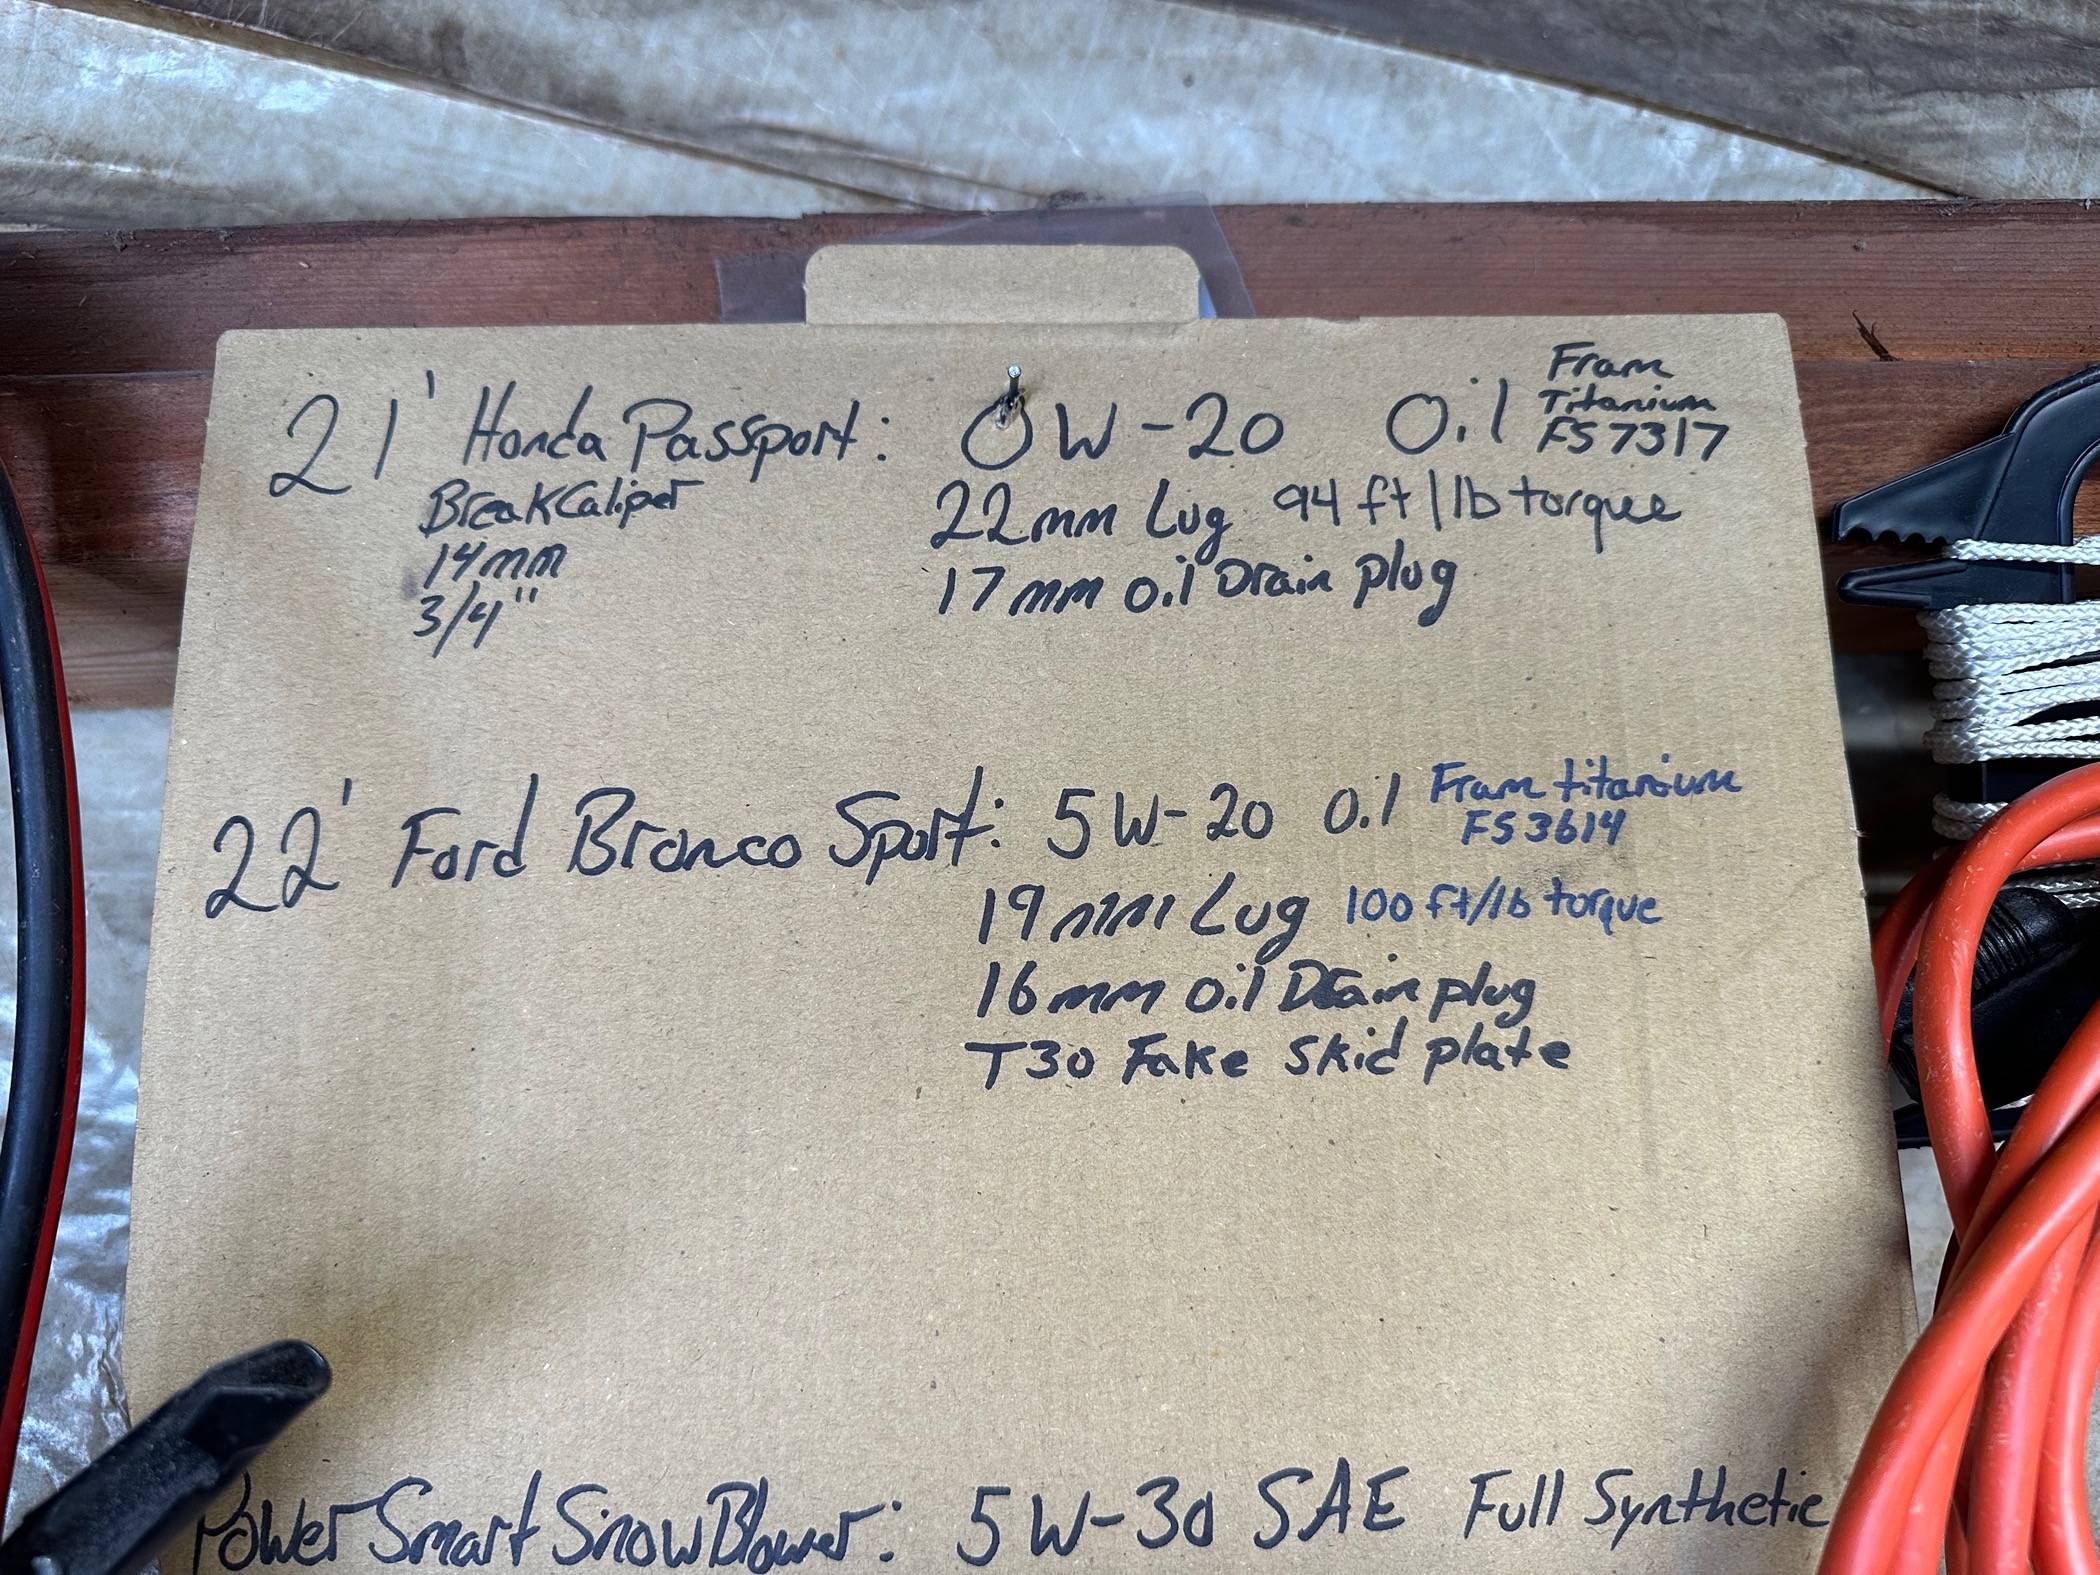 21' Honda Passport: 0W-20 Oil Fram
Titanium
FS7317
Break Caliper
14mm
3/4"
22mm Lug 94 ft/lb torque
17mm oil Drain plug
22' Ford Bronco Sport: 5W-20 Oil Fram titanium
FS3614
19mm Lug 100 ft/lb torque
16mm oil Drain plug
T30 Fake skid plate
PowerSmart SnowBlower: 5W-30 SAE Full Synthetic